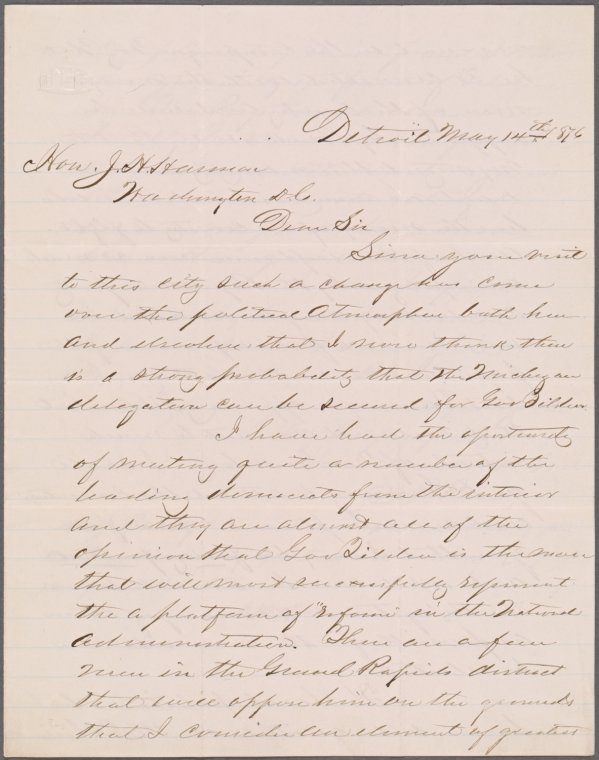 Detroit May 14th 1876
Hon. J. H. Harmon
Washington D.C.
Dear Sir
Since your visit
to this city such a change has come
over the political Atmosphere both here
and elsewhere that I now think there
is a strong probability that the Michigan
delegation can be secured for Gov Tilden
I have had the oportunity
of meeting quite a number of the
leading democrats from the interior
and they are almost all of the
opinion that Gov Tilden is the man
that will most successfully represent
the a platform of "Reform" in the National
administration. There are a few
men in the Grand Rapids district
that will oppose him on the grounds
that I consider an element of greatest